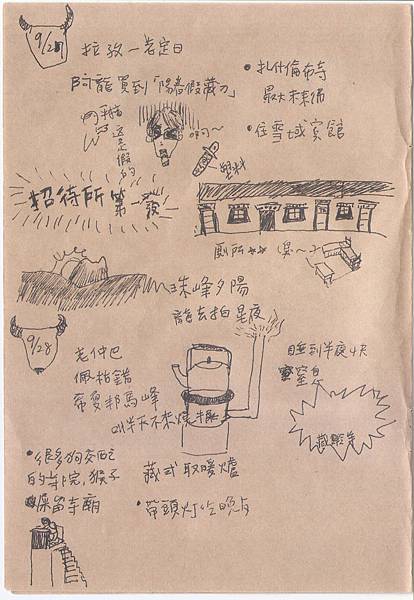 9/27
拉孜—老定日
阿龍買到「陽春假藏刀」
這是假的
塑料
•扎什倫布寺
最大未來佛
•住雪域賓館
招待所第一發
廁所
珠峰夕陽
龍去拍星夜
9/28
老仲巴
佩枯錯
希夏邦馬峰
叫半天不來燒
牛糞
藏式取暖爐
睡到半夜4次
窒息
•很多狗交配
的寺院,猴子
保留寺廟
•帶頭灯吃晚占